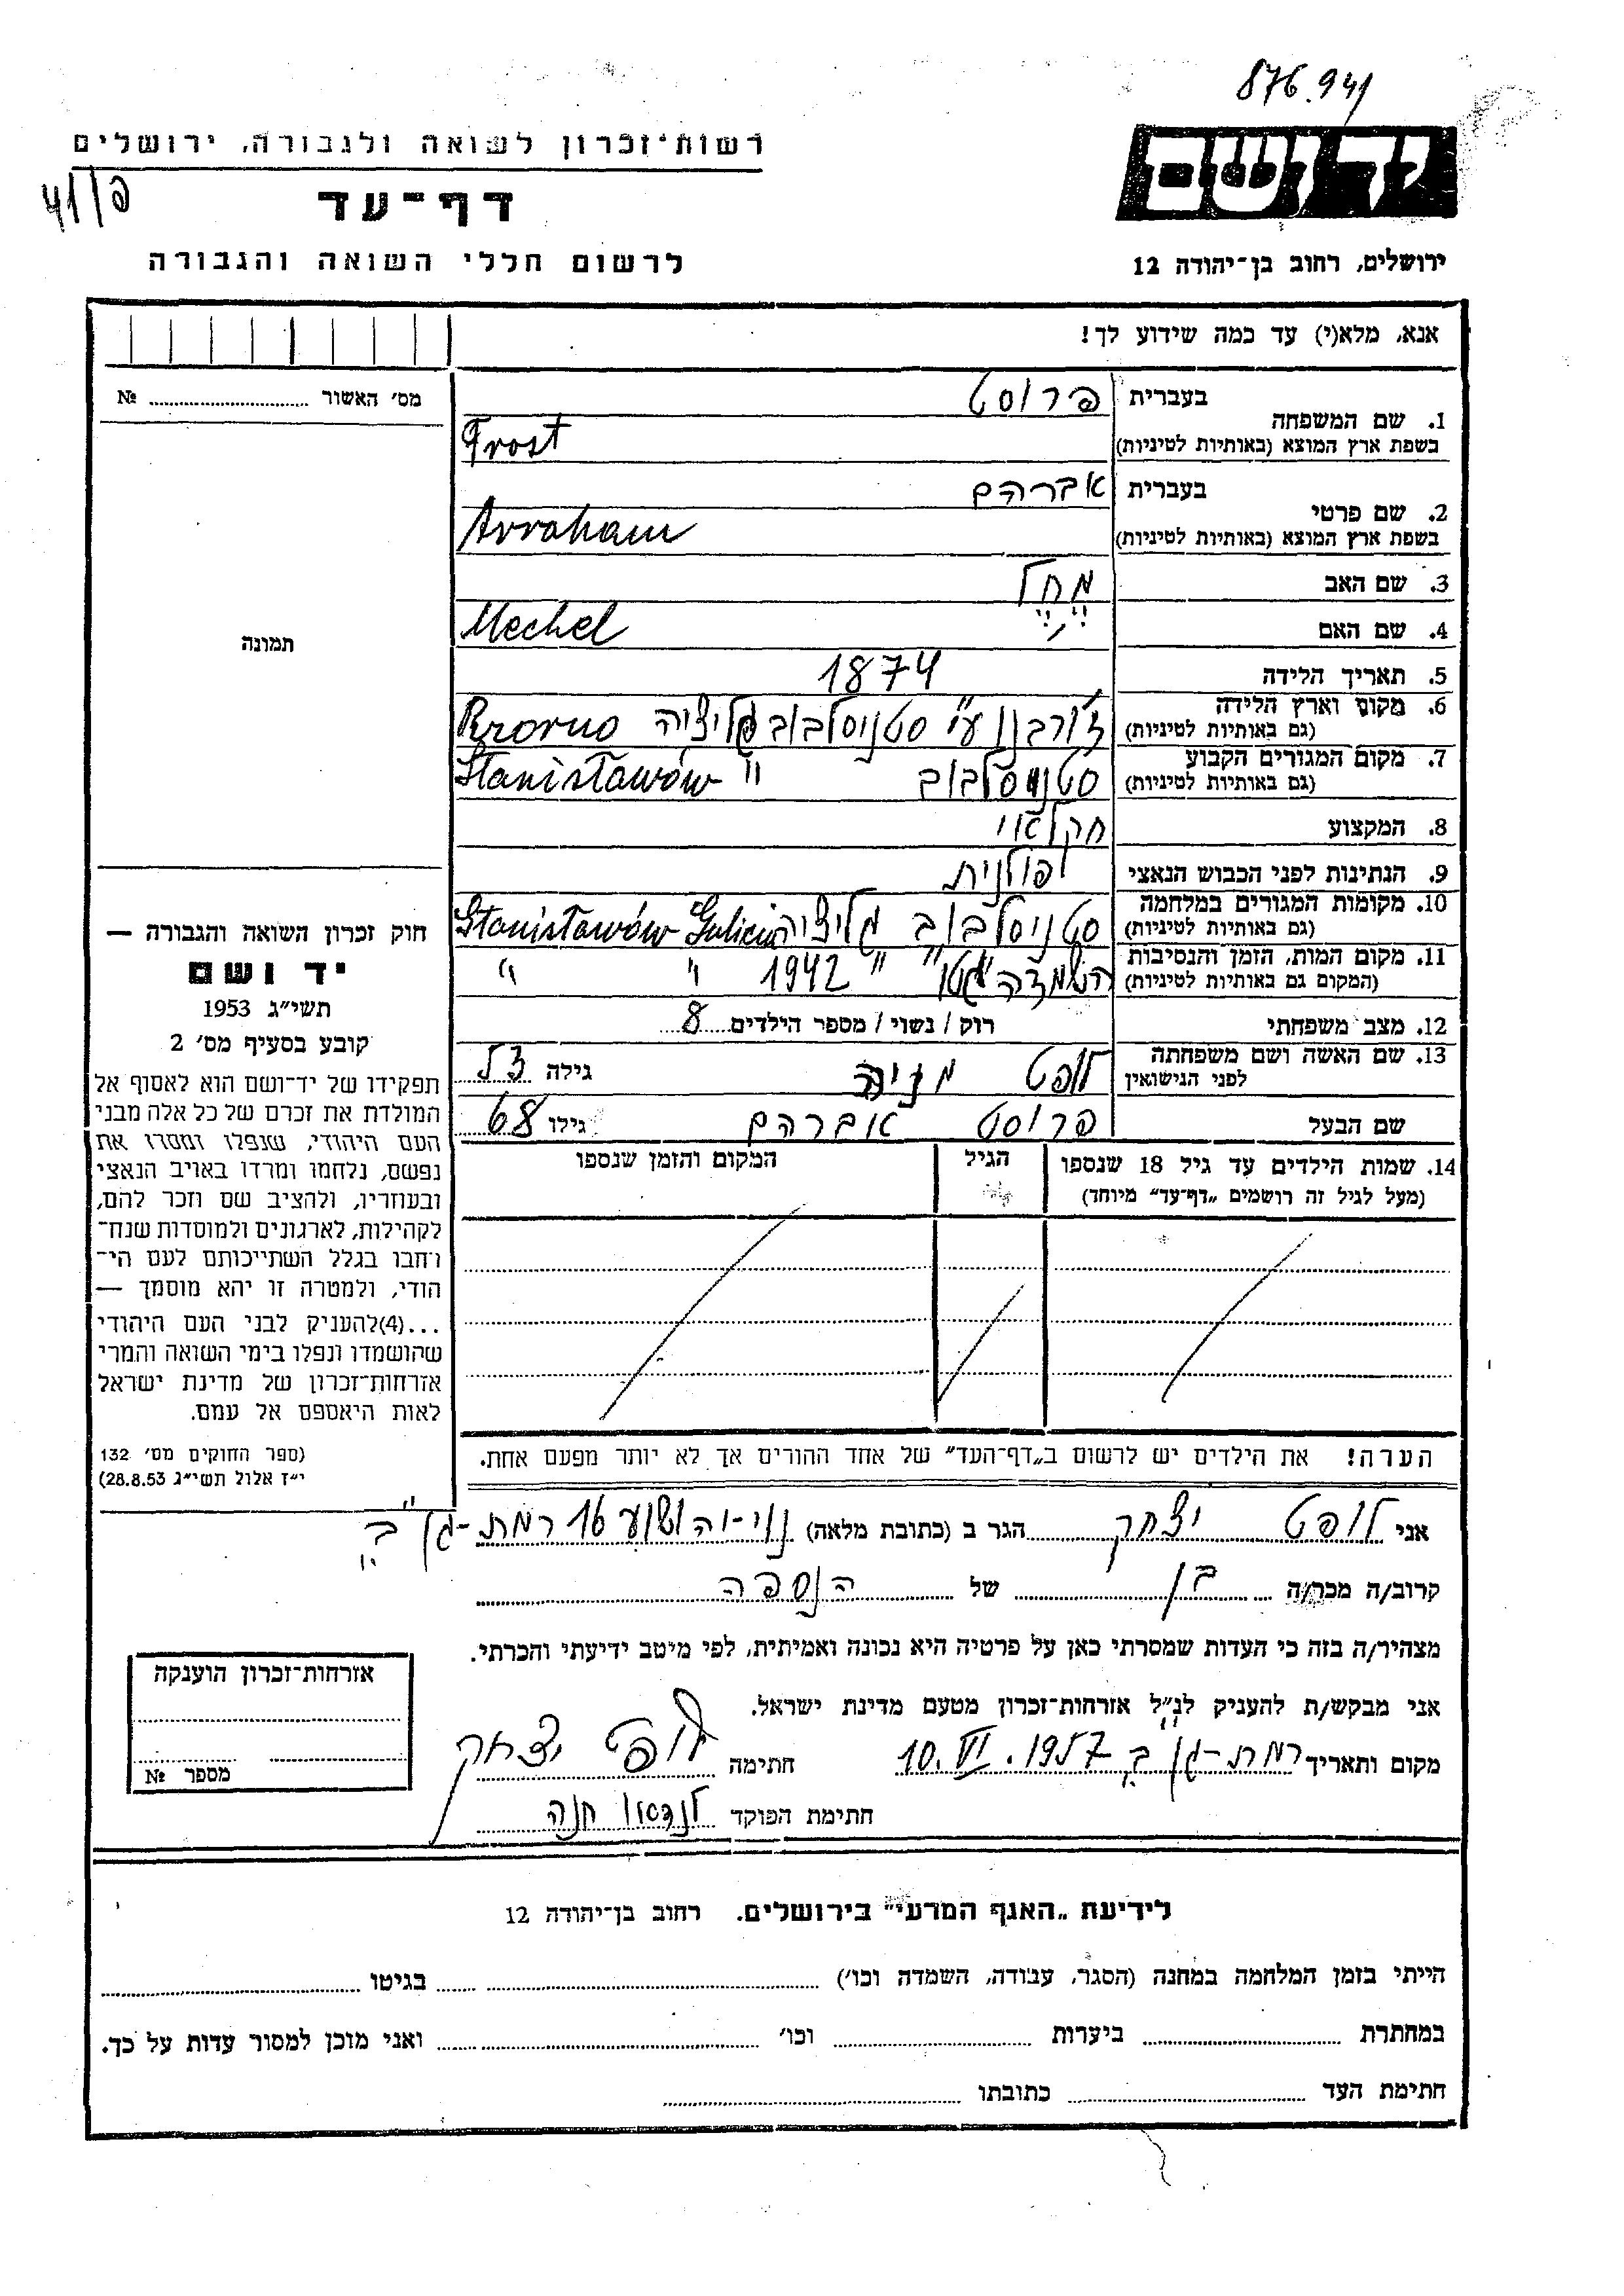 876.941
רשות־זכרון לשואה ולגבורה, ירושלים
יד ושם
פ/41
דף־עד
לרשום חללי השואה והגבורה
ירושלים, רחוב בן־יהודה 12
אנא, מלא(י) עד כמה שידוע לך!
מס׳ האשור № ........
תמונה
חוק זכרון השואה והגבורה —
יד ושם
תשי״ג 1953
קובע בסעיף מס׳ 2
תפקידו של יד־ושם הוא לאסוף אל
המולדת את זכרם של כל אלה מבני
העם היהודי, שנפלו ומסרו את
נפשם, נלחמו ומרדו באויב הנאצי
ובעוזריו, ולהציב שם וזכר להם,
לקהילות, לארגונים ולמוסדות שנח־
רחבו בגלל השתייכותם לעם הי־
הודי, ולמטרה זו יהא מוסמך —
...(4)להעניק לבני העם היהודי
שהושמדו ונפלו בימי השואה והמרי
אזרחות־זכרון של מדינת ישראל
לאות היאספם אל עמם.
(ספר החוקים מס׳ 132
י״ז אלול תשי״ג 28.8.53)
1. שם המשפחה בעברית פרוסט
בשפת ארץ המוצא (באותיות לטיניות) Frost
2. שם פרטי בעברית אברהם
בשפת ארץ המוצא (באותיות לטיניות) Avraham
3. שם האב מחל
4. שם האם Mechel
5. תאריך הלידה 1874
6. מקום וארץ הלידה סטניסלבוב גליציה
(גם באותיות לטיניות)
7. מקום המגורים הקבוע סטניסלבוב " Stanisławów
(גם באותיות לטיניות)
8. המקצוע חקלאי
9. הנתינות לפני הכבוש הנאצי פולנית
10. מקומות המגורים במלחמה סטניסלבוב גליציה Stanisławów Galicia
(גם באותיות לטיניות)
11. מקום המות, הזמן והנסיבות השמדה "גטו" " 1942 " "
(המקום גם באותיות לטיניות)
12. מצב משפחתי רוק / נשוי / מספר הילדים 8
13. שם האשה ושם משפחתה לופט מניה גילה 53
לפני הנישואין
שם הבעל פרוסט אברהם גילו 68
14. שמות הילדים עד גיל 18 שנספו הגיל המקום והזמן שנספו
(מעל לגיל זה רושמים „דף־עד״ מיוחד)
הערה! את הילדים יש לרשום ב„דף־העד״ של אחד ההורים אך לא יותר מפעם אחת.
אני לופט יצחק הגר ב (כתובת מלאה) נוי־יהושע 16 רמת־גן ב״
קרוב/ה מכר/ה בן של הנספה
מצהיר/ה בזה כי העדות שמסרתי כאן על פרטיה היא נכונה ואמיתית, לפי מיטב ידיעתי והכרתי.
אני מבקש/ת להעניק לנ״ל אזרחות־זכרון מטעם מדינת ישראל.
מקום ותאריך רמת־גן ב 10.VI.1957 חתימה לופט יצחק
חתימת הפוקד לנדאו חנה
אזרחות־זכרון הוענקה
מספר №
לידיעת „האגף המדעי״ בירושלים. רחוב בן־יהודה 12
הייתי בזמן המלחמה במחנה (הסגר, עבודה, השמדה וכו׳) ........ בגיטו ........
במחתרת ........ ביערות ........ וכו׳ ........ ואני מוכן למסור עדות על כך.
חתימת העד ........ כתובתו ........